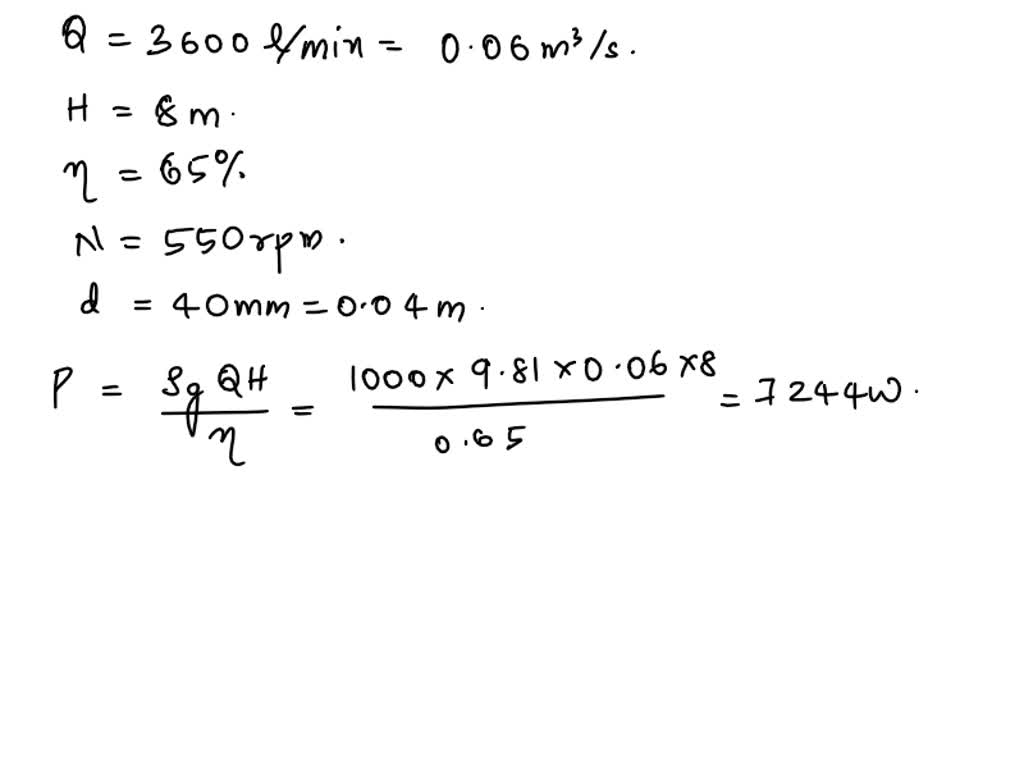 Q = 3600 l/min = 0.06 m³/s.
H = 8 m.
η = 65%
N = 550 rpm.
d = 40mm = 0.04 m.
P = ρg QH / η = 1000 × 9.81 × 0.06 × 8 / 0.65 = 7244 W.